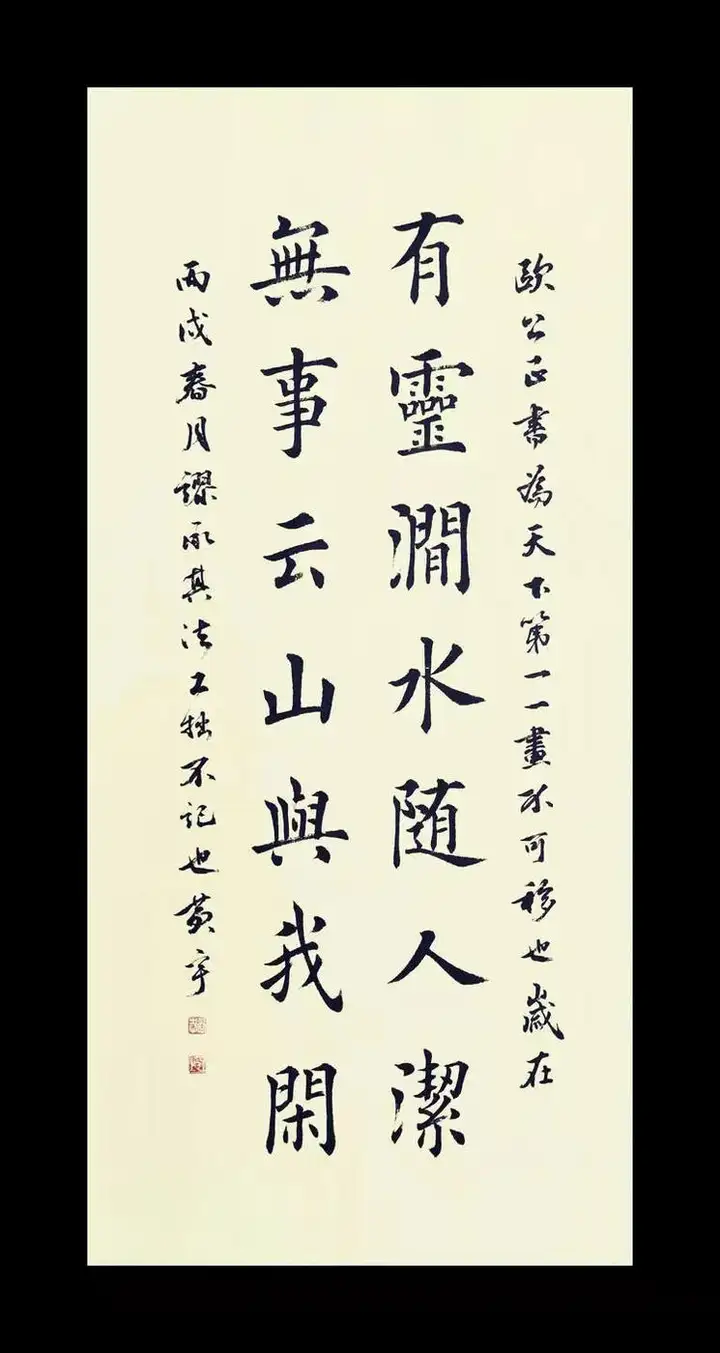 歐公正書為天下第一一畫不可移也歲在
有靈澗水随人潔
無事云山與我閑
丙戌春月謬承其法工拙不記也黃宇